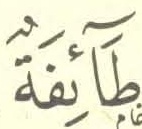 طَآئِفَةٌ